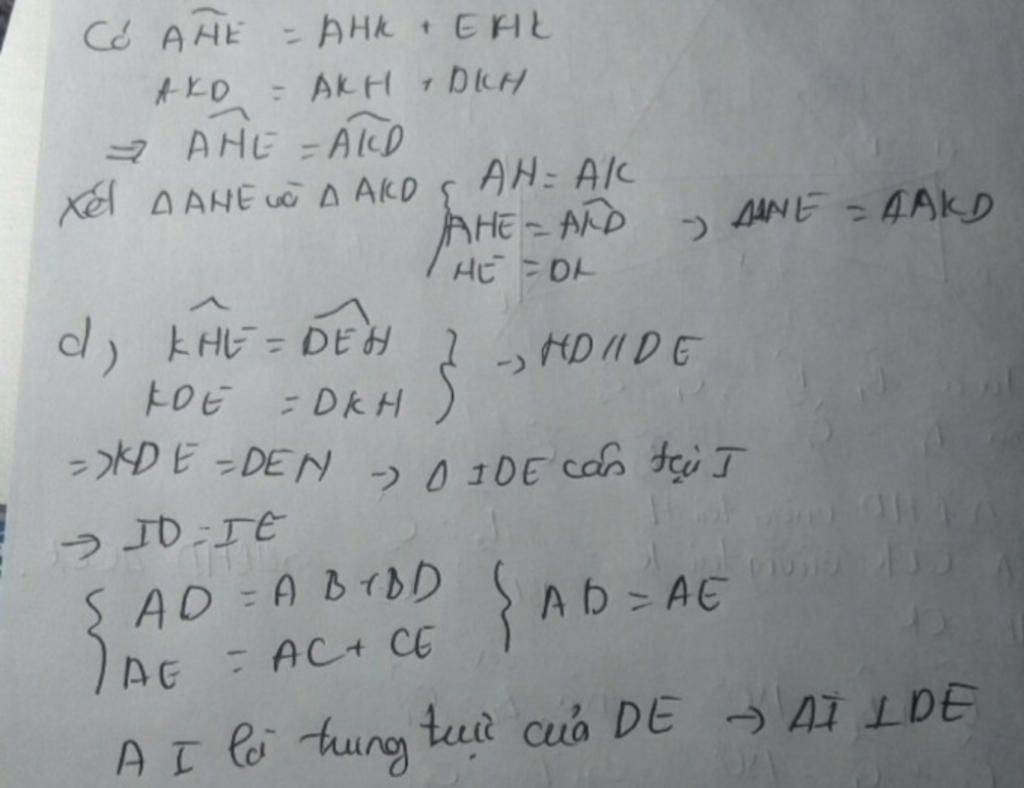 Có AHE = AHK + EHK
AKD = AKH + DKH
=> AHE = AKD
Xét Δ AHE và Δ AKD { AH = AK
AHE = AKD -> ΔAHE = ΔAKD
HE = DK
d, KHE = DEH } -> HD // DE
KDE = DKH
=> KDE = DEH -> Δ IDE cân tại I
-> ID = IE
{ AD = AB + BD } AD = AE
AE = AC + CE
AI là trung trực của DE -> AI ⊥ DE